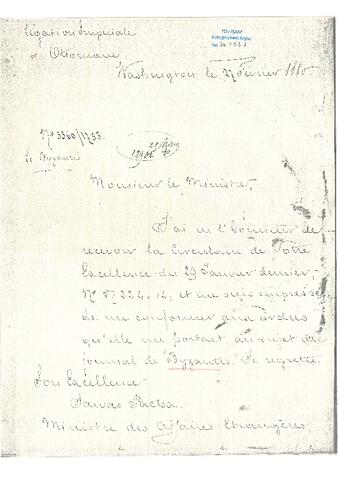 Légation Impériale
Ottomane
TDV İSAM
Kütüphanesi Arşivi
No
Washington le 27 Février 1880
No 3360/1733
Le Byzantis
Monsieur le Ministre,
J'ai eu l'honneur de
recevoir la Circulaire de Votre
Excellence du 29 Janvier dernier,
No et me suis empressé
de me conformer aux ordres
qu'elle me portait au sujet du
journal de "Byzantis". Je regrette
Son Excellence
Savas Pacha
Ministre des Affaires Etrangères,